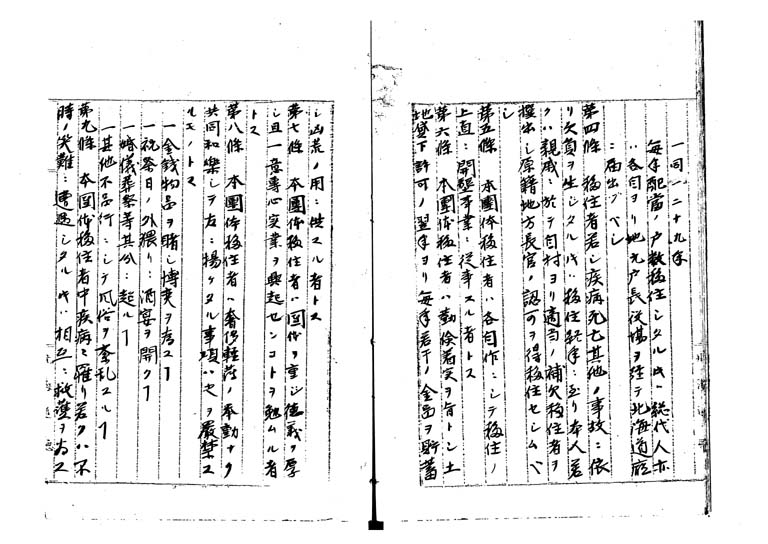 一同一二十九年
毎年配當ノ户数移住シタルトキハ総代人亦
ハ各自ヨリ地元户長役場ヲ経テ北海道廳
ニ届出ヅベシ
第四條 移住者若シ疾病死亡其他ノ事故ニ依
リ欠員ヲ生シタルトキハ移住翌年ニ至リ本人若
クハ親戚ニ於テ自村ヨリ適当ノ補欠移住者ヲ
撰出シ原籍地方長官ノ認可ヲ得移住セシムベ
シ
第五條 本團体移住者ハ各自作ニシテ移住ノ
上直ニ開墾事業ニ従事スル者トス
第六條 本團体移住者ハ勤倹着実ヲ旨トシ土
地貸下許可ノ翌年ヨリ毎年若干ノ金品ヲ貯蓄
シ凶荒ノ用ニ供スル者トス
第七條 本團体移住者ハ国体ヲ重シ徳義ヲ厚
シ且一意専心実業ヲ興起センコトヲ勉ムル者
トス
第八條 本團体移住者ハ奢侈軽薄ノ挙動ナク
共同和樂シテ左ニ揚ケタル事項ハ之ヲ厳禁ス
ルモノトス
一金銭物品ヲ賭シ博奕ヲ為スヿ
一祝祭日ノ外猥リニ酒宴ヲ開クヿ
一婚儀葬祭等其分ニ超ルヿ
一其他不品行ニシテ風俗ヲ紊乱スルヿ
第九條 本団体移住者中疾病ニ罹リ若クハ不
時ノ災難ニ遭遇シタルトキハ相互ニ救護ヲ為ス